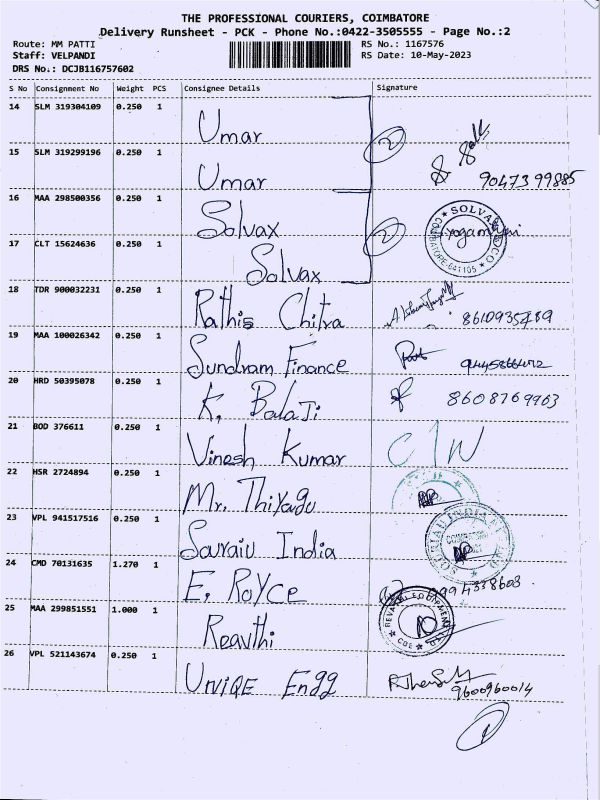 THE PROFESSIONAL COURIERS, COIMBATORE
Delivery Runsheet - PCK - Phone No.:0422-3505555 - Page No.:2
Route: MM PATTI RS No.: 1167576
Staff: VELPANDI RS Date: 10-May-2023
DRS No.: DCJB116757602
S No Consignment No Weight PCS Consignee Details Signature
14 SLM 319304109 0.250 1 Umar
2
15 SLM 319299196 0.250 1 Umar 9047399885
16 MAA 298500356 0.250 1 Solvax SOLVA
2
17 CLT 15624636 0.250 1 Solvax COIMBATORE-641105
18 TDR 900032231 0.250 1 Rathis Chitra
19 MAA 100026342 0.250 1 Sundram Finance
20 HRD 50395078 0.250 1 K. Balaji 8608769963
21 BOD 376611 0.250 1 Vinesh Kumar
22 HSR 2724894 0.250 1 Mr. Thiyagu
23 VPL 941517516 0.250 1 Sauraiu India
24 CMD 70131635 1.270 1 E. Royce 9994338603
25 MAA 299851551 1.000 1 Reavthi
26 VPL 521143674 0.250 1 UNIQE Engg
9600960014
1